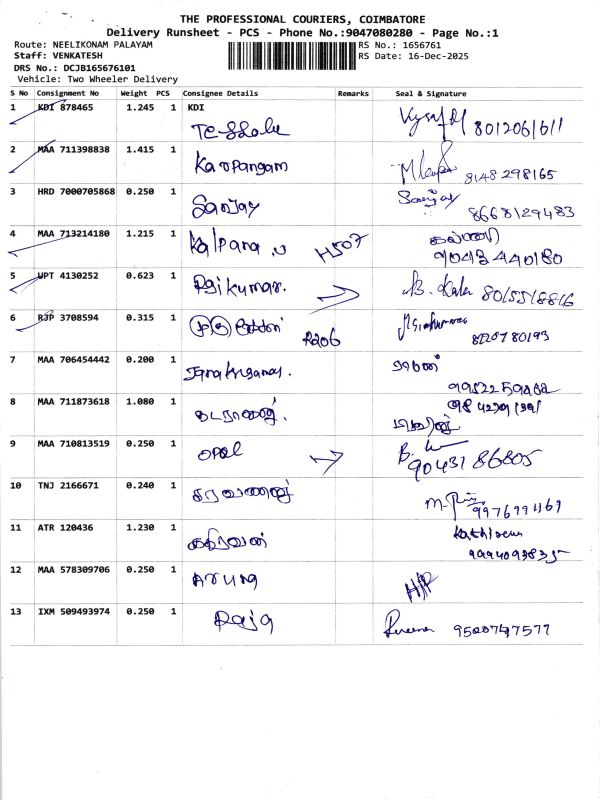 THE PROFESSIONAL COURIERS, COIMBATORE
Delivery Runsheet - PCS - Phone No.:9047080280 - Page No.:1
Route: NEELIKONAM PALAYAM
RS No.: 1656761
Staff: VENKATESH
RS Date: 16-Dec-2025
DRS No.: DCJB165676101
Vehicle: Two Wheeler Delivery
S No Consignment No Weight PCS Consignee Details Remarks Seal & Signature
1 KDI 878465 1.245 1 KDI
8012061611
2 MAA 711398838 1.415 1 Karpangam
8148298165
3 HRD 7000705868 0.250 1 Sanjay Sanjay
8668129483
4 MAA 713214180 1.215 1 Kalpana .v H507 கல்பனா
9043440180
5 UPT 4130252 0.623 1 Rajkumar. B. Kala 8015518816
6 RJP 3708594 0.315 1 R206
8220780193
7 MAA 706454442 0.200 1
8 MAA 711873618 1.080 1 நடராஜன்.
9 MAA 710813519 0.250 1 opal
9043186805
10 TNJ 2166671 0.240 1 சரவணன்
9976991169
11 ATR 120436 1.230 1 கதிரவன் Kathiravan
9994093835
12 MAA 578309706 0.250 1 Arung H/P
13 IXM 509493974 0.250 1 Raja 9500747577